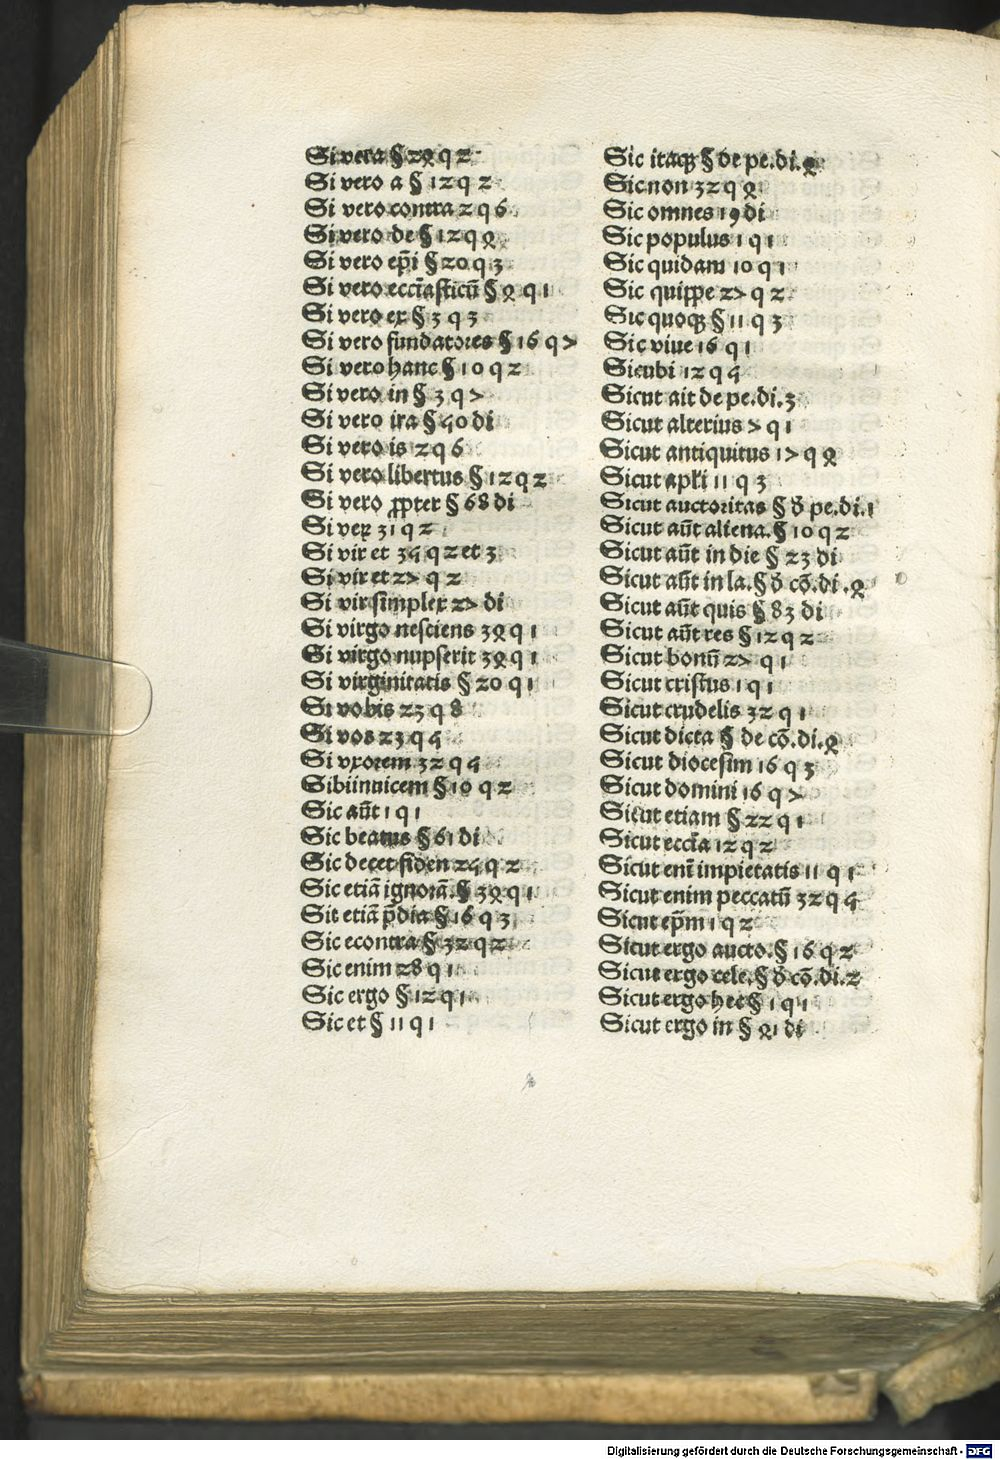 Si vera § 25 q 2
Si vero a § 12 q 2
Si vero contra 2 q 6
Si vero de § 12 q 5
Si vero ep̄i § 20 q 3
Si vero eccl̄asticū § 5 q 1
Si vero ex § 3 q 3
Si vero fundatores § 16 q 7
Si vero hanc § 10 q 2
Si vero in § 3 q 7
Si vero ira § 40 di
Si vero is 2 q 6
Si vero libertus § 12 q 2
Si vero ꝓpter § 68 di
Si veꝝ 31 q 2
Si vir et 34 q 2 et 3
Si vir et 27 q 2
Si vir simplex 27 di
Si virgo nesciens 35 q 1
Si virgo nupserit 35 q 1
Si virginitatis § 20 q 1
Si vobis 23 q 8
Si vos 23 q 4
Si vxorem 32 q 4
Sibiinuicem § 10 q 2
Sic aūt 1 q 1
Sic beatus § 61 di
Sic decet fiden 24 q 2
Sic etiā ignorā. § 35 q 1
Sit etiā p̄dia § 16 q 3
Sic econtra § 32 q 2
Sic enim 28 q 1
Sic ergo § 12 q 1
Sic et § 11 q 1
Sic itaqꝫ § de pe.di.5
Sic non 32 q 5
Sic omnes 19 di
Sic populus 1 q 1
Sic quidam 10 q 1
Sic quippe 27 q 2
Sic quoqꝫ § 11 q 3
Sic viue 16 q 1
Sicubi 12 q 4
Sicut ait de pe.di.3
Sicut alterius 7 q 1
Sicut antiquitus 17 q 5
Sicut apl̄i 11 q 3
Sicut auctoritas § d̄ pe.di.1
Sicut aūt aliena. § 10 q 2
Sicut aūt in die § 23 di
Sicut aūt in la. § d̄ cō.di.5
Sicut aūt quis § 83 di
Sicut aūt res § 12 q 2
Sicut bonū 27 q 1
Sicut cristus 1 q 1
Sicut crudelis 32 q 1
Sicut dicta § de cō.di.5
Sicut diocesim 16 q 3
Sicut domini 16 q 7
Sicut etiam § 22 q 1
Sicut eccl̄a 12 q 2
Sicut enī impietatis 11 q 1
Sicut enim peccatū 32 q 4
Sicut ep̄m 1 q 2
Sicut ergo aucto. § 16 q 2
Sicut ergo cele. § d̄ cō.di.2
Sicut ergo hec § 1 q 1
Sicut ergo in § 51 di
Digitalisierung gefördert durch die Deutsche Forschungsgemeinschaft - DFG